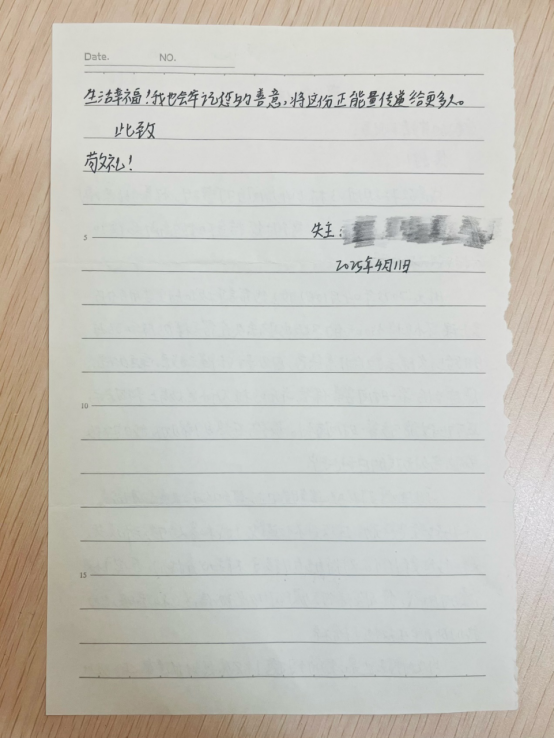 Date. NO.
生活幸福！我也会牢记您的善意，将这份正能量传递给更多人。
此致
敬礼！
5
失主：
2025年4月11日
10
15